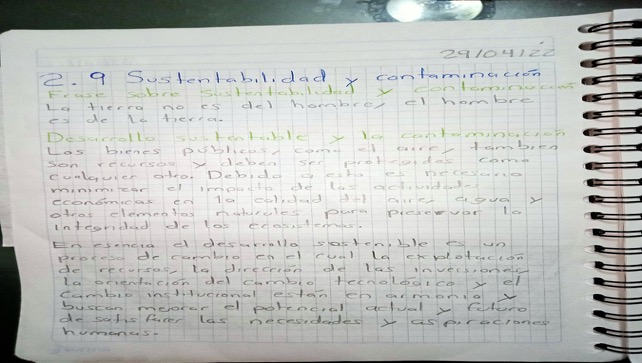 29/04/22
2.9 Sustentabilidad y contaminación
Frase sobre Sustentabilidad y contaminación
La tierra no es del hombre, el hombre
es de la tierra.
Desarrollo sustentable y la contaminación
Los bienes públicos, como el aire, tambien
son recursos y deben ser protegidos como
cualquier otro. Debido a esto es necesario
minimizar el impacto de las actividades
económicas en la calidad del aire, agua y
otros elementos naturales para preservar la
integridad de los ecosistemas.
En esencia el desarrollo sostenible es un
proceso de cambio en el cual la explotación
de recursos, la dirección de las inversiones
la orientación del cambio tecnologico y el
cambio institucional están en armonia y
buscan mejorar el potencial actual y futuro
de satisfacer las necesidades y aspiraciones
humanas.